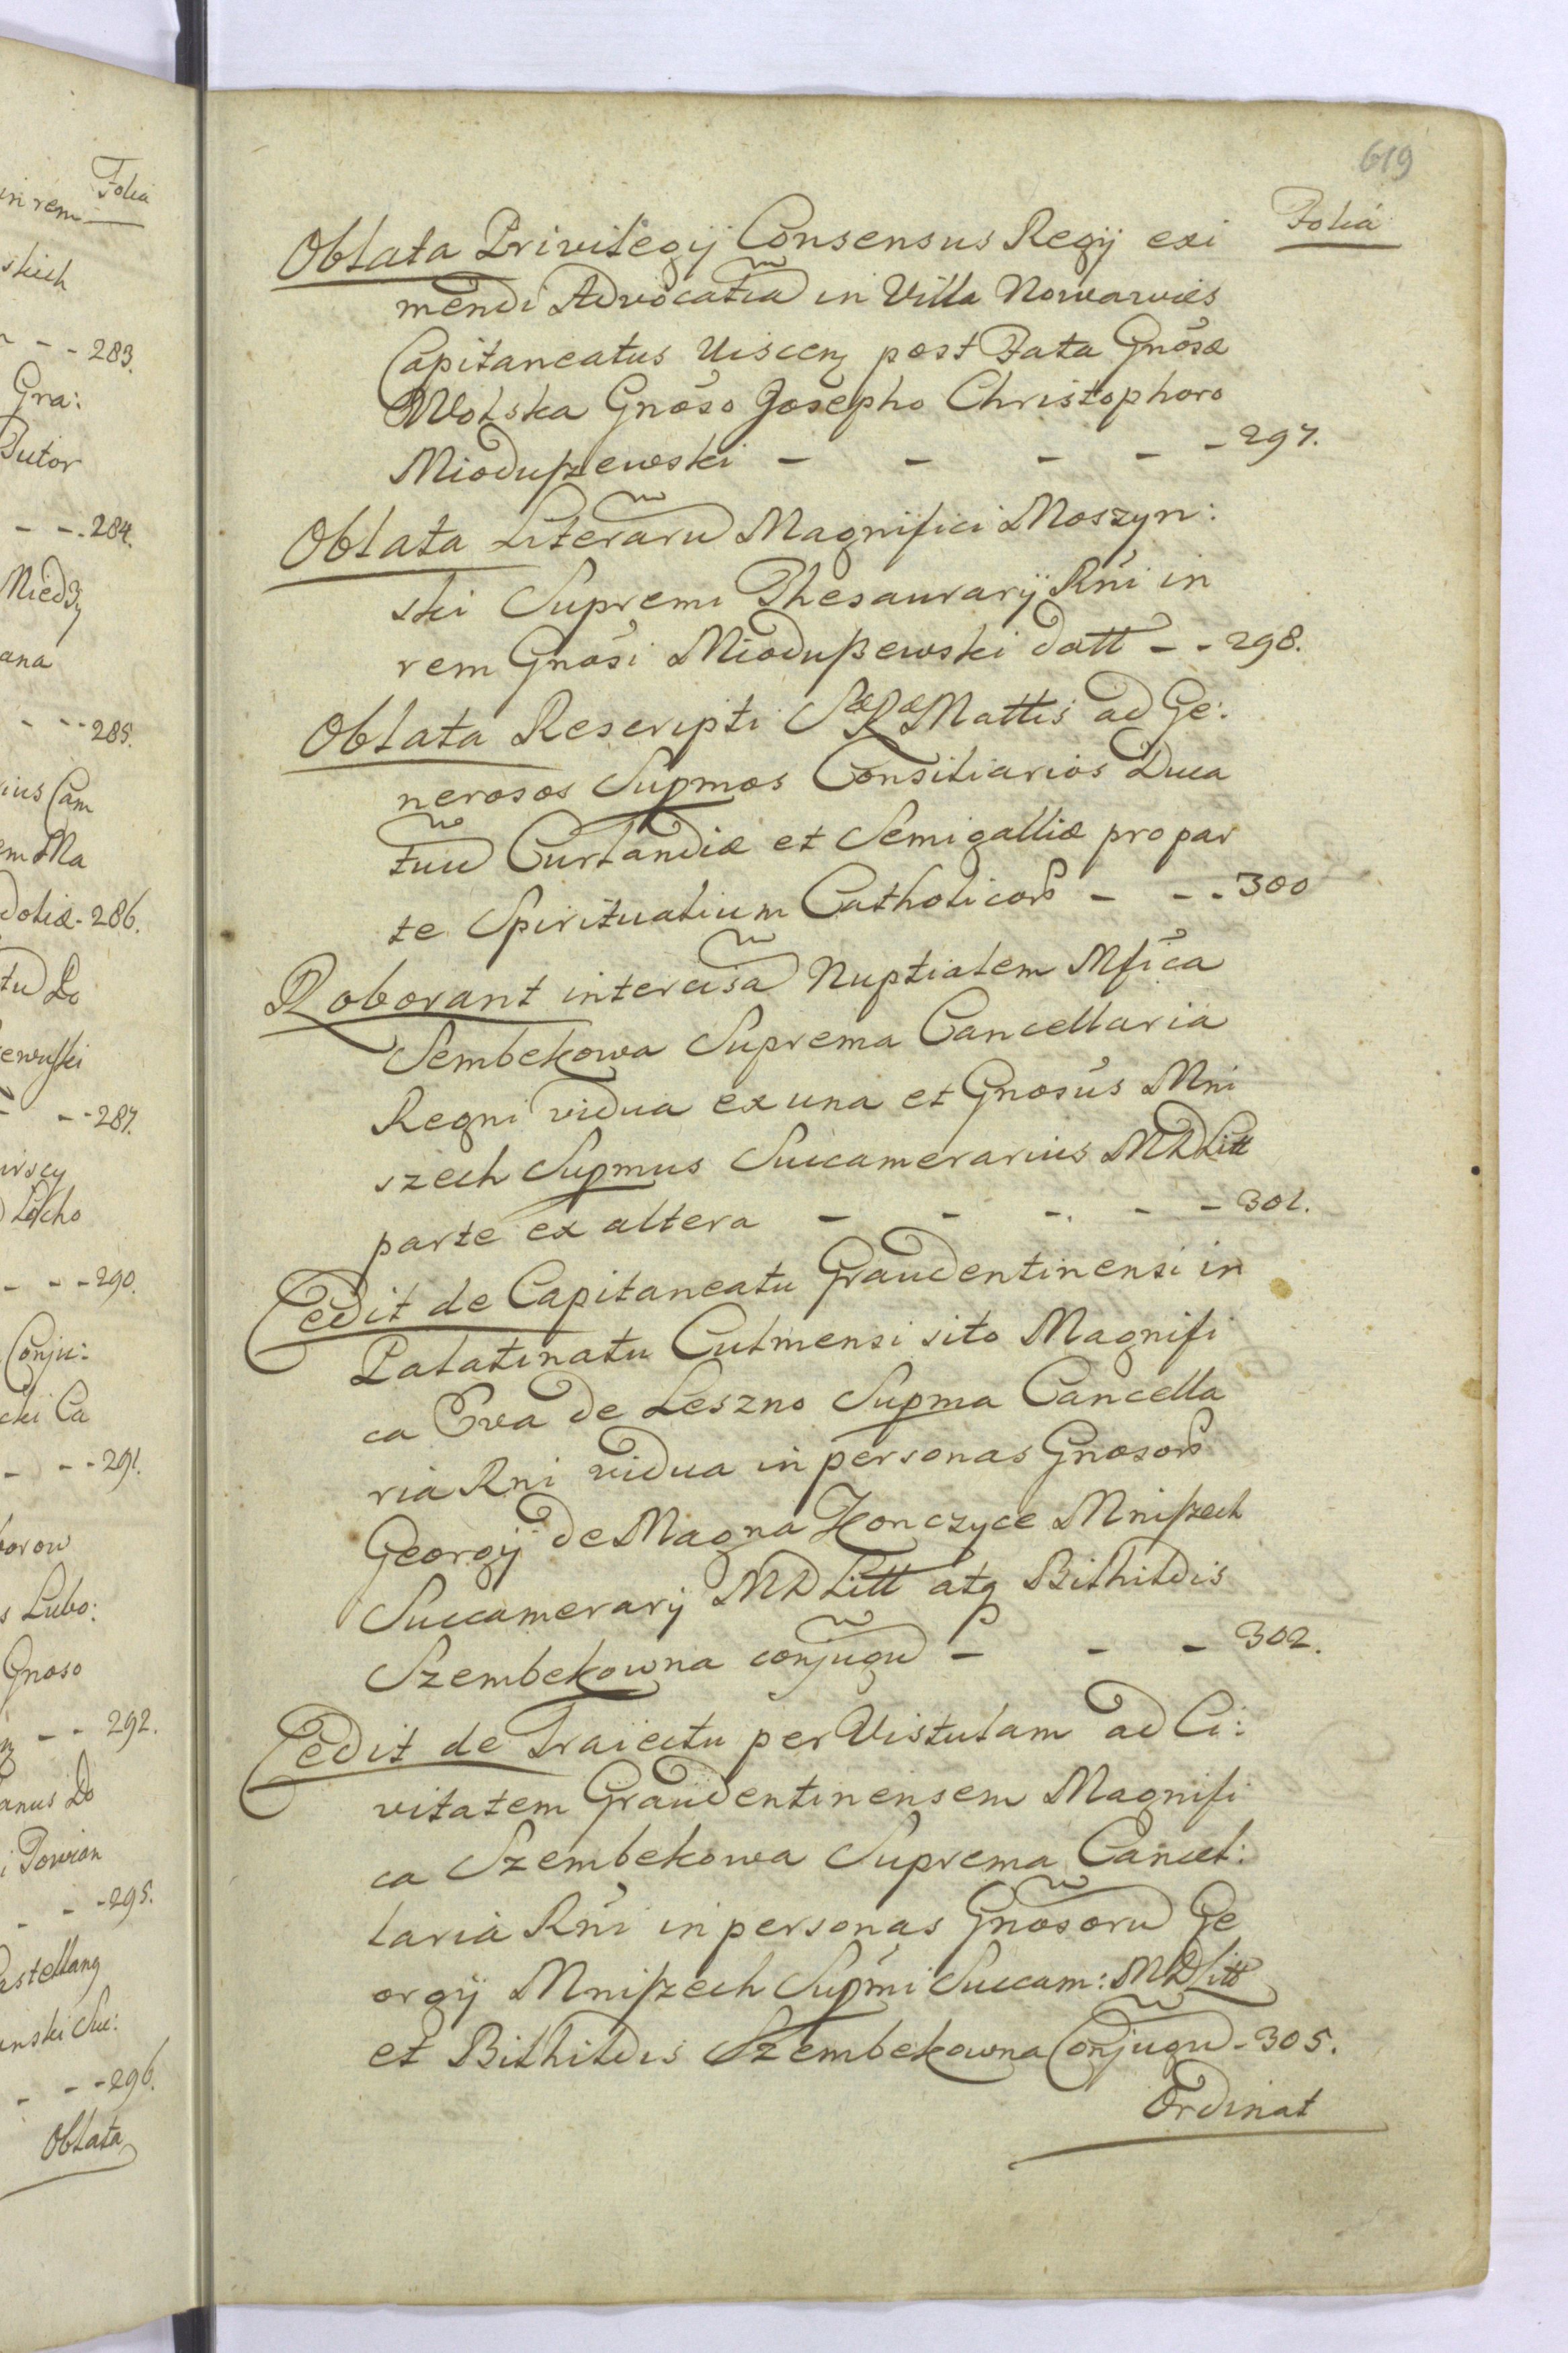 619
Folia
Oblata Privilegij Consensus Regij exi
mendi Advocatia in Villa Nowawies
Capitaneatus Uiscen post Fata Gnosæ
Wolska Gnoso Josepho Christophoro
Mioduszewski - - - - - 297.
Oblata Literaru Magnifici Moszyn:
ski Supremi Thesaurarij Rni in
rem Gnosi Mioduszewski datt - - 298.
Oblata Rescripti SæRæ Mattis ad Ge:
nerosos Supmos Consiliarios Duca
tuu Curlandiæ et Semigalliæ pro par
te Spiritualium Catholicor - - - 300
Roborant intercisa Nuptialem Mfica
Sembekowa Suprema Cancellaria
Regni vidua ex una et Gnosus Mni
szech Supmus Succamerarius MDLitt
parte ex altera - - - - - 301.
Cedit de Capitaneatu Graudentinensi in
Palatinatu Culmensi sito Magnifi
ca Eva de Leszno Supma Cancella
ria Rni vidua in personas Gnosor
Georgij de Magna Konczyce Mniszech
Succamerarij MDLitt atq Bithildis
Szembekowna conjugu - - - 302.
Cedit de Traiectu per Vistulam ad Ci:
vitatem Graudentinensem Magnifi
ca Szembekowa Suprema Cancel:
laria Rni in personas Gnosoru Ge
orgij Mniszech Supmi Succam: MDLitt
et Bithildis Szembekowna Conjugu - 305.
Ordinat
Folia
in rem
skich
- - - 283.
Gra:
Tutor
- - - 284.
Miedzy
ana
- - - 285.
rius Cam
em Ma
doliæ - 286.
tu Do
ewuski
- - - 287.
irscy
Locho
- - - 290.
Conju:
cki Ca
- - - 291.
borow
s Lubo:
Gnoso
- - 292.
anus Do
i Powian
- - - 295.
Castellang
inski Suc:
- - - 296.
Oblata